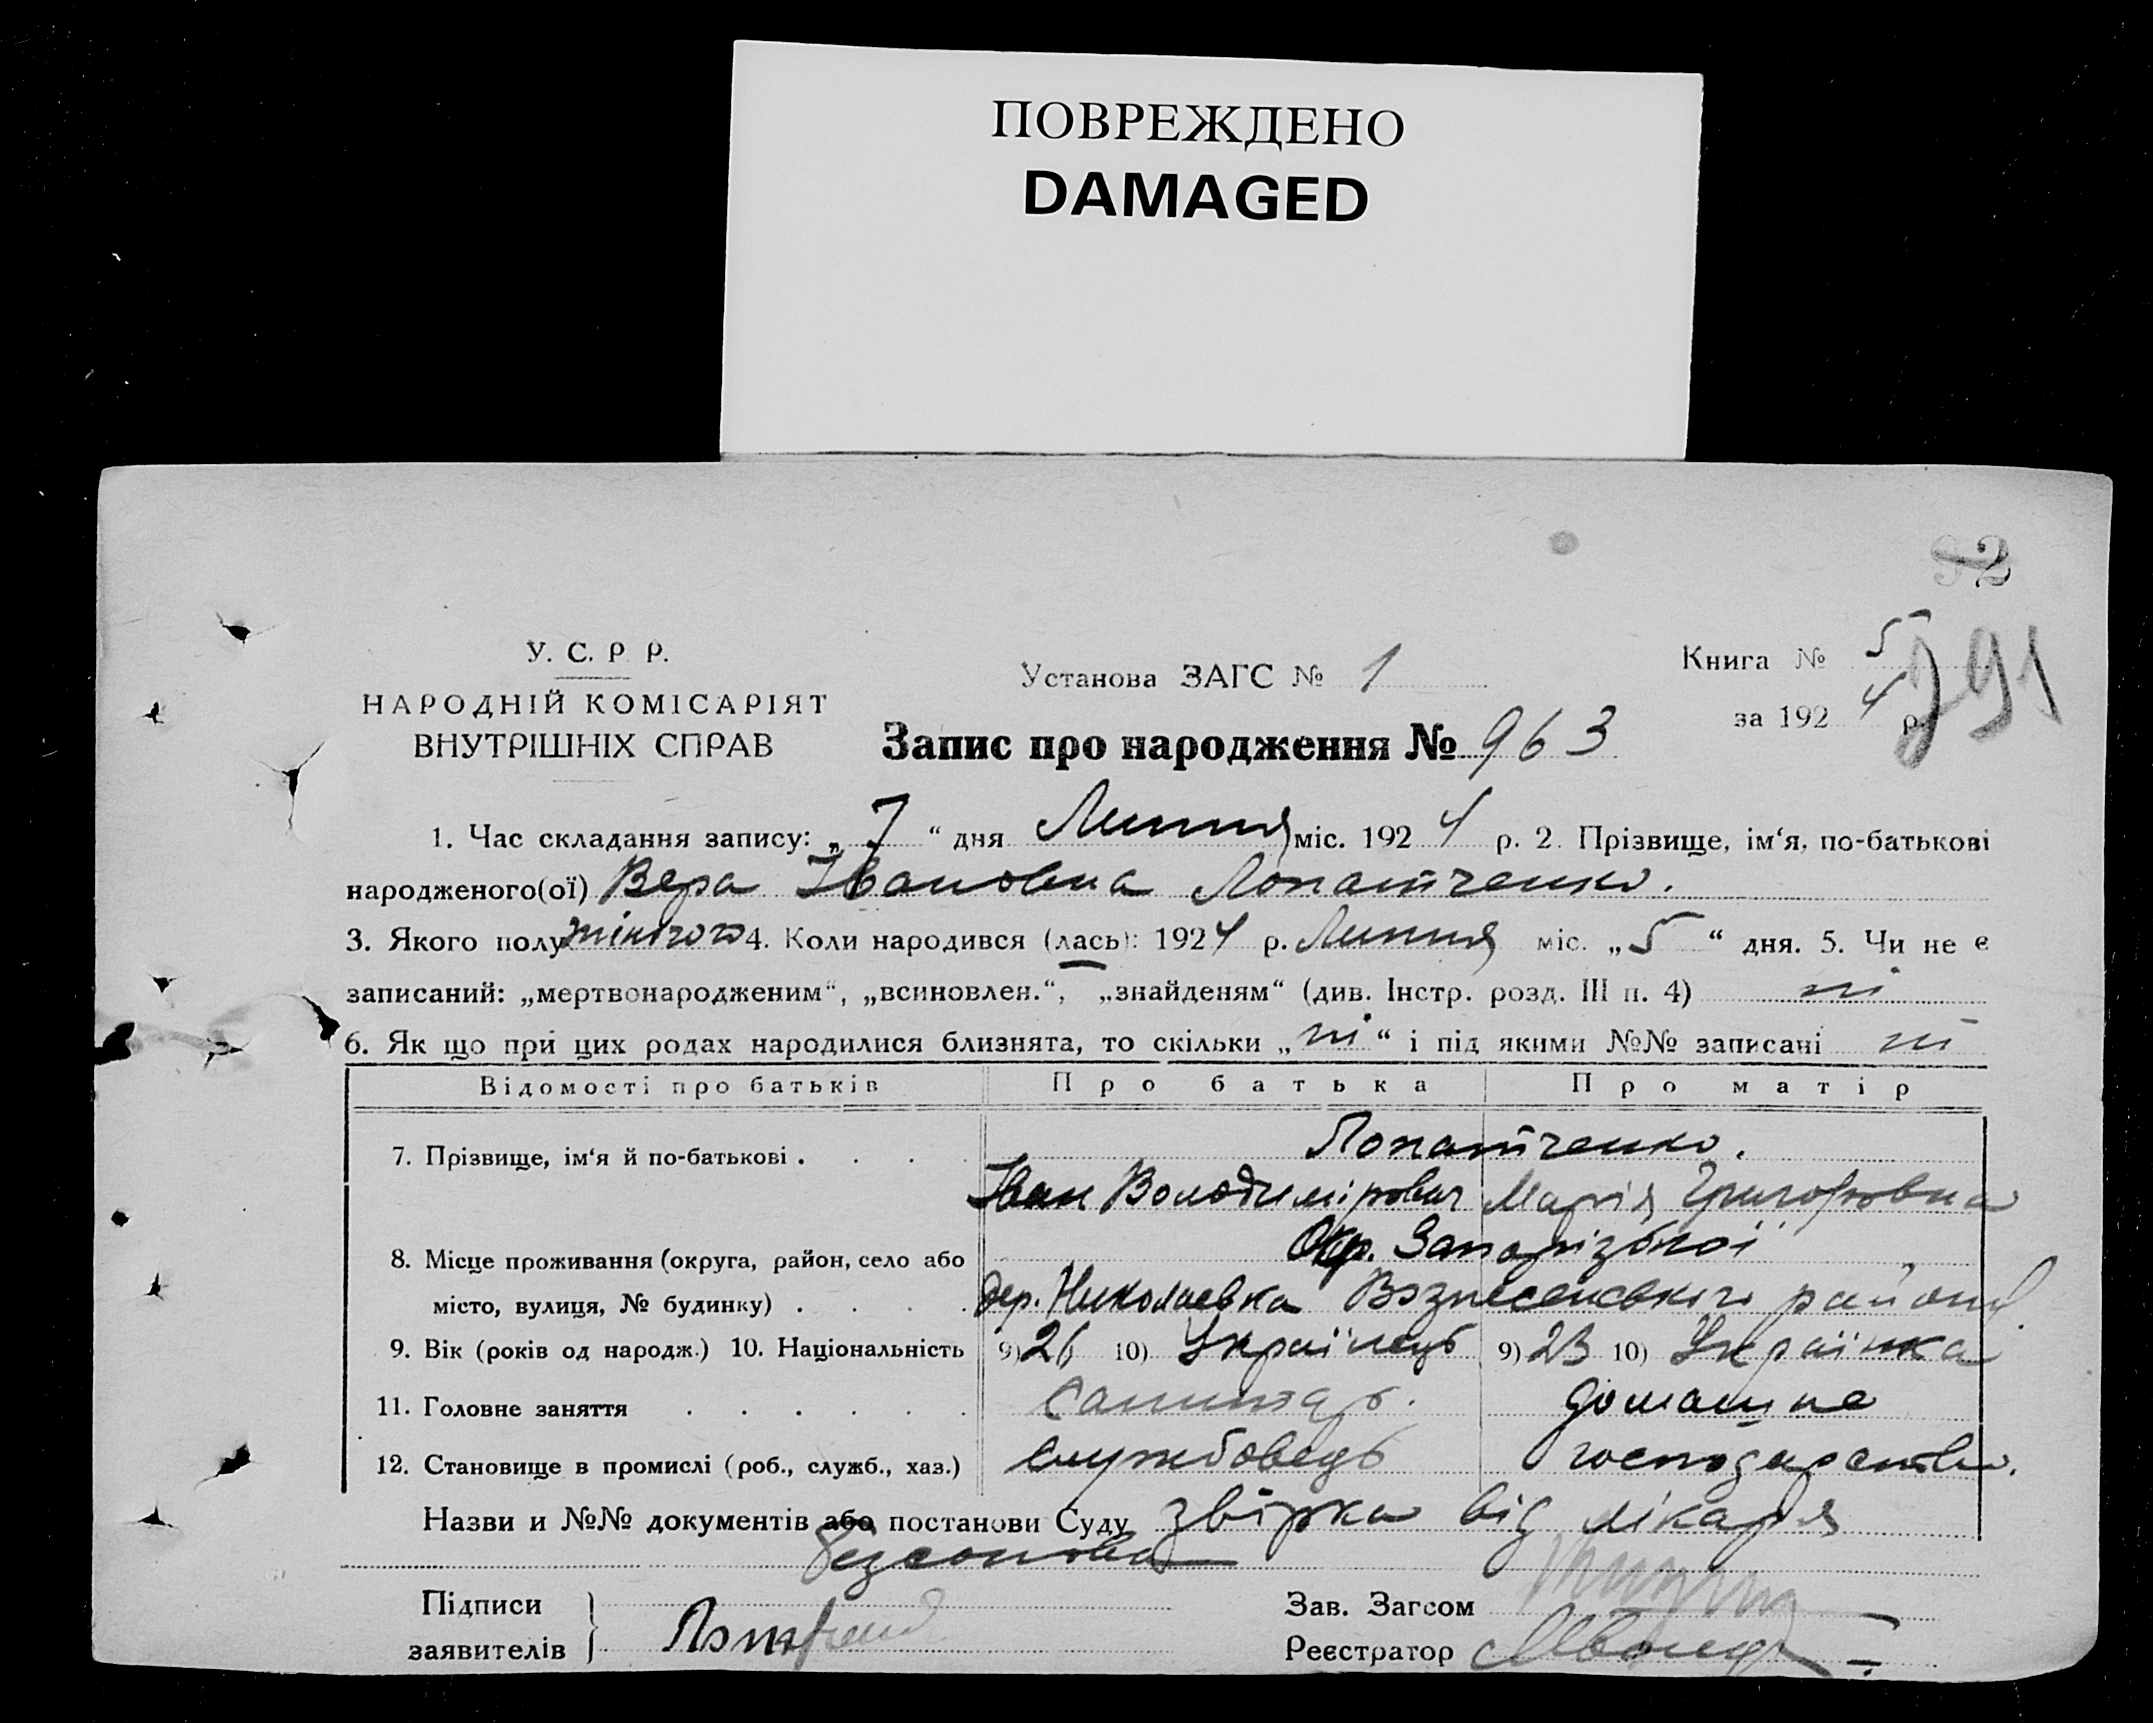 ПОВРЕЖДЕНО
DAMAGED
2
У. С. Р. Р.
НАРОДНІЙ КОМІСАРІЯТ
ВНУТРІШНІХ СПРАВ
Установа ЗАГС № 1
Книга № 5
за 192 4 р.
291
Запис про народження № 963
1. Час складання запису: „ 7 “ дня Липня міс. 192 4 р. 2. Прізвище, ім‘я, по-батькові
народженого(ої) Вера Івановна Лопатченко.
3. Якого полу жіночого 4. Коли народився (лась): 192 4 р. Липня міс. „ 5 “ дня. 5. Чи не є
записаний: „мертвонародженим“, „всиновлен.“, „знайденям“ (див. Інстр. розд. III п. 4) ні
6. Як що при цих родах народилися близнята, то скільки „ ні “ і під якими №№ записані ні
Відомості про батьків Про батька Про матір
7. Прізвище, ім‘я й по-батькові . . . . Лопатченко.
Іван Володимірович Марія Григоровна
8. Місце проживання (округа, район, село або Окр. Запорізької
місто, вулиця, № будинку) . . . . дер. Николаевка Вознесенського району
9. Вік (років од народж.) 10. Національність 9) 26 10) Українець 9) 23 10) Українка
11. Головне заняття . . . . . . Санитар. домашнє
12. Становище в промислі (роб., служб., хаз.) службовець господарство.
Назви и №№ документів або постанови Суду звірка від лікаря
Підписи
заявителів
Зав. Загсом
Реєстратор